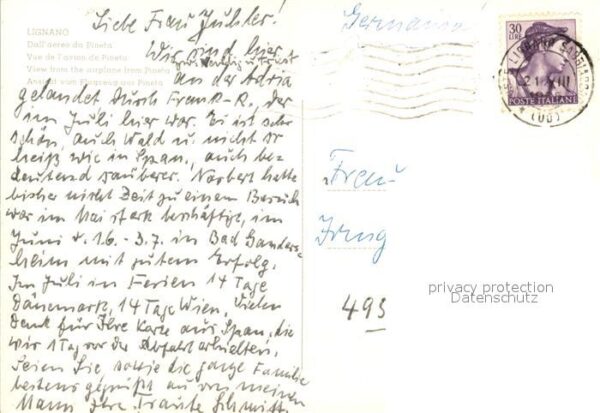 Liebe Frau Juhster!
Germania!
LIGNANO
Dall'aereo da Pineta
Vue de l'avion de Pineta
View from the airplane from Pineta
Ansicht vom Flugzeug aus Pineta
Wir sind hier
an der Adria
gelandet durch Frank-R., der
im Juli hier war. Es ist sehr
schön, auch Wald u. nicht so
heiß wie in Span., auch be-
deutend sauberer. Norbert hatte
bisher nicht Zeit zu einem Besuch
war im Mai stark beschäftigt, im
Juni u. 16. - 3.7. in Bad Ganders-
heim mit gutem Erfolg.
Im Juli in Ferien 14 Tage
Dänemark, 14 Tage Wien. Vielen
Dank für Ihre Karte aus Span., die
wir 1 Tag vor der Abfahrt erhielten.
Seien Sie, sowie die ganze Familie
bestens gegrüßt auch von meinem
Mann Ihre Traute Schmitt
30
LIRE
POSTE ITALIANE
LIGNANO SABBIADORO
(UD)
Frau
Irmg
493
privacy protection
Datenschutz